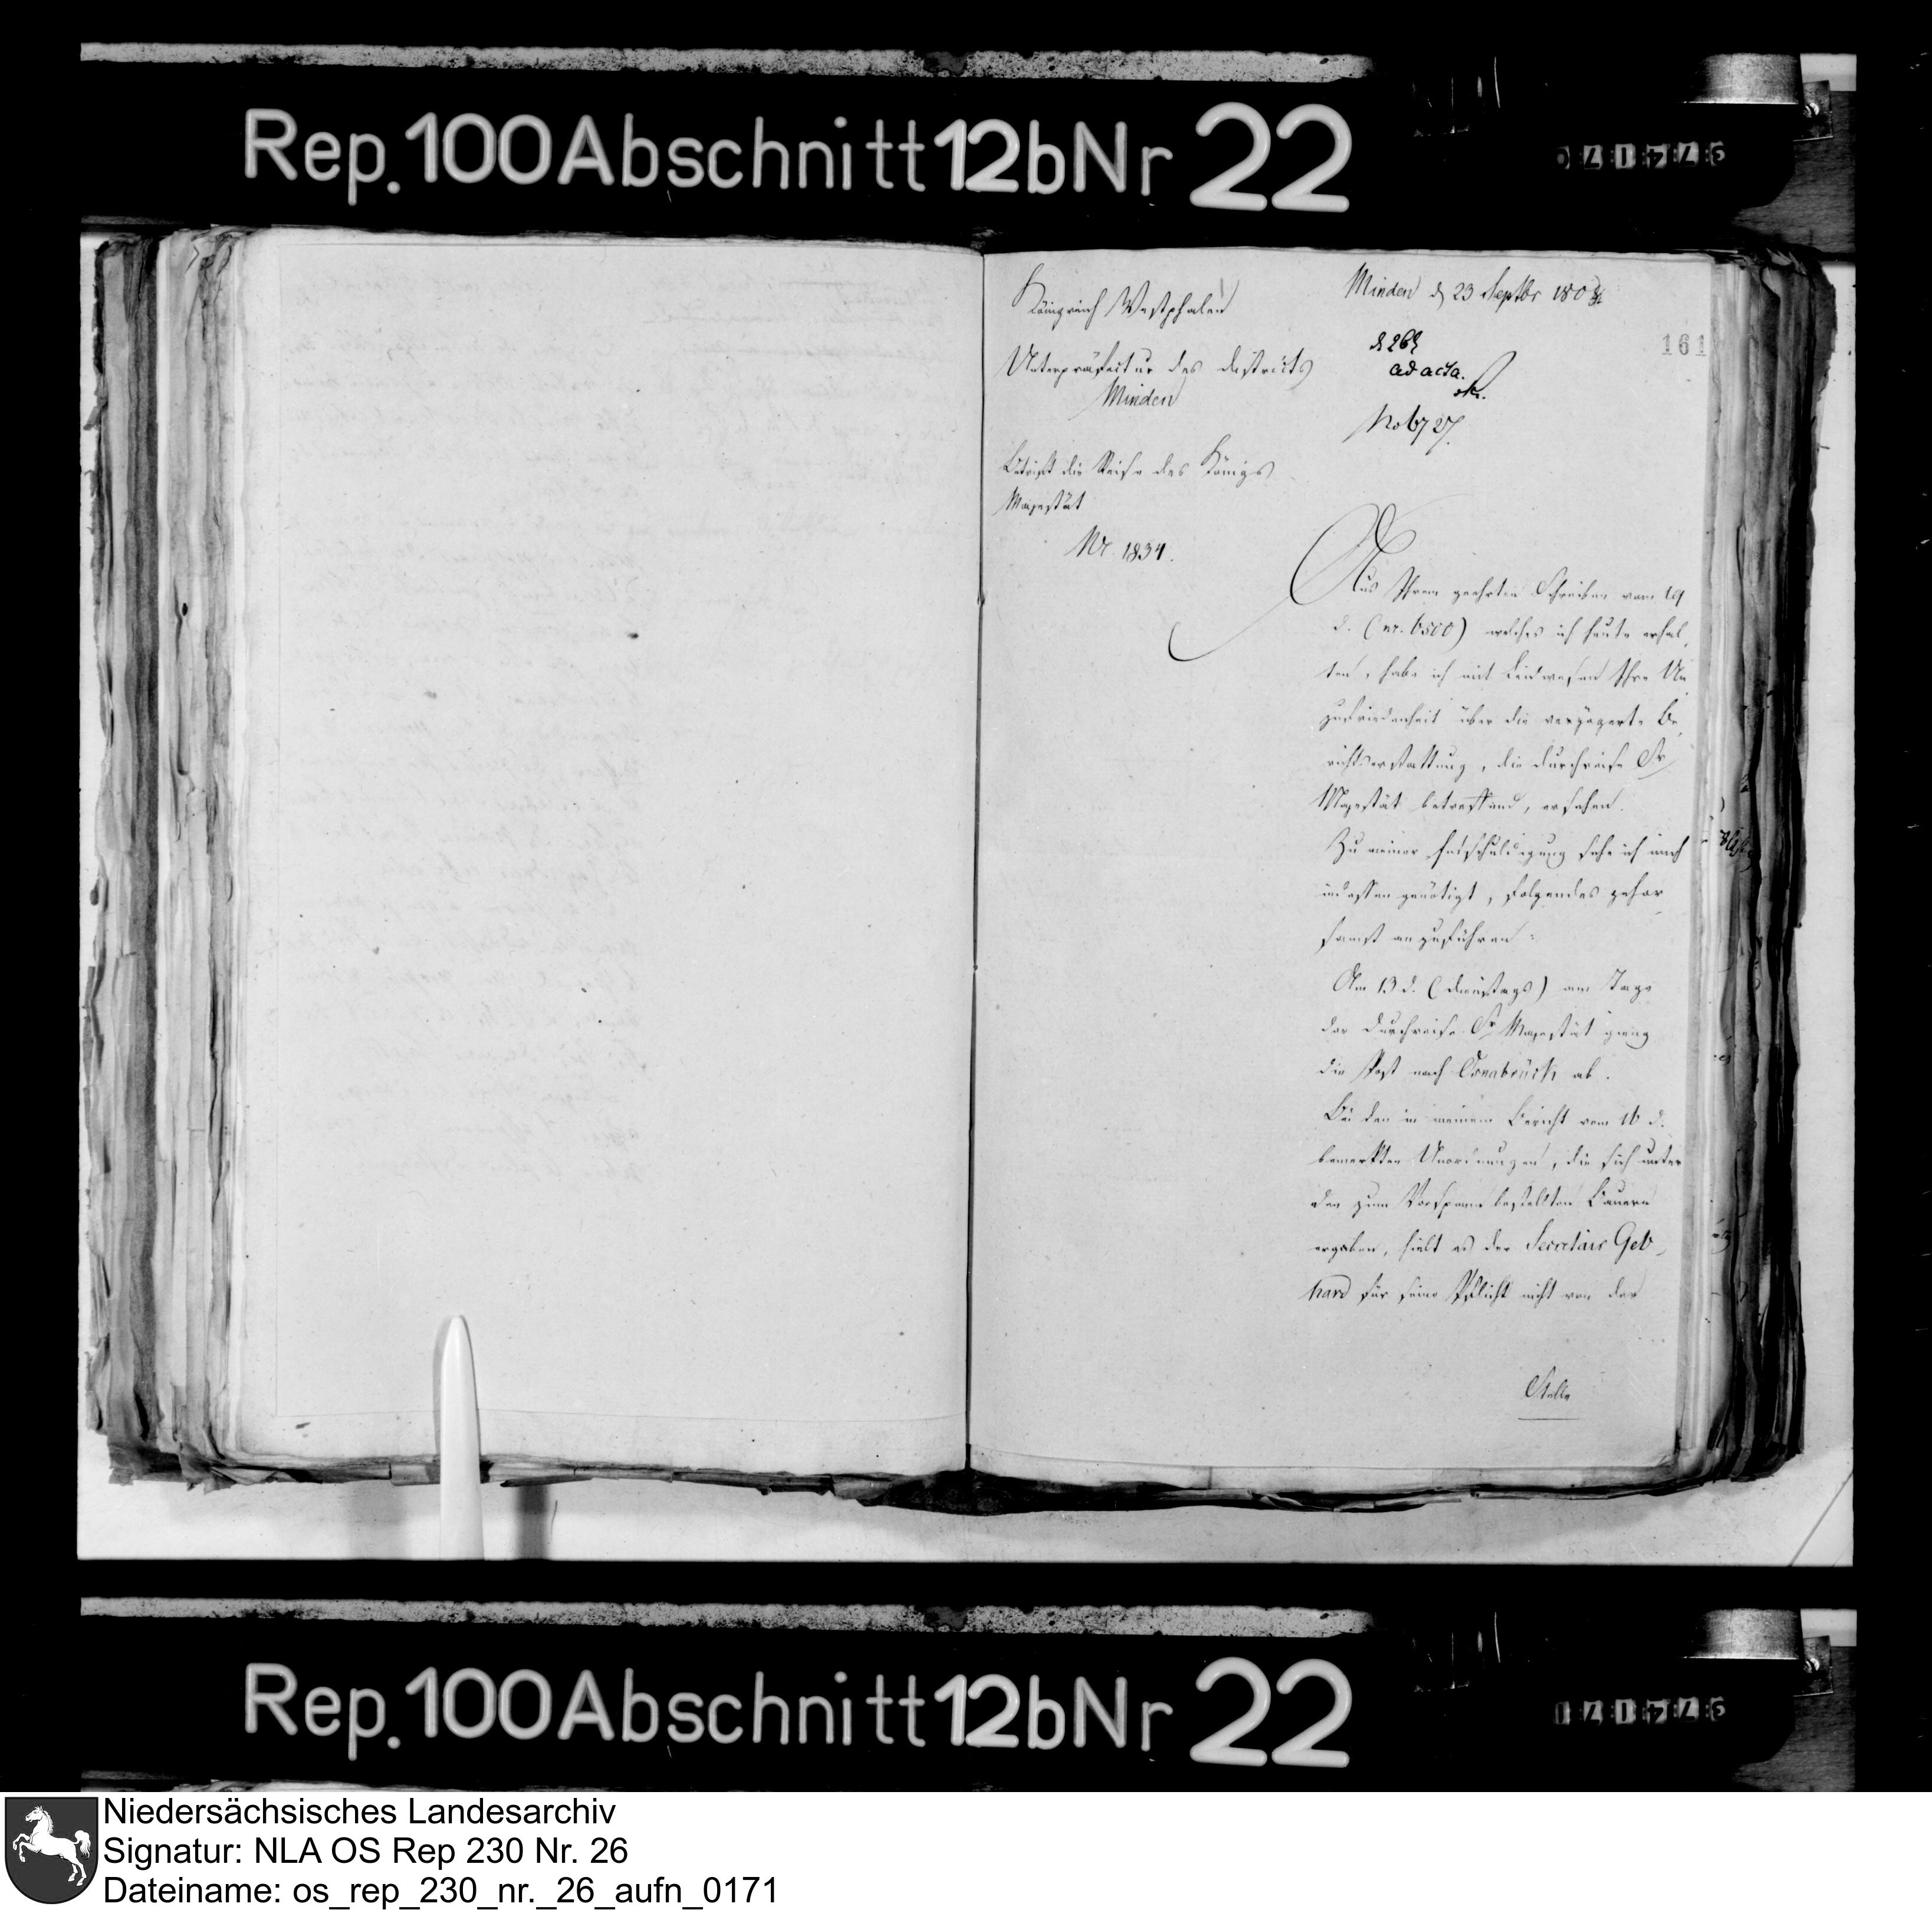 Rep. 100 Abschnitt 12b Nr 22
Königreich Westphalen
Unterpräfectur des Districts
Minden
Minden d 23 Septbr 1808
161
ad acta.
Betrift die Reise des Königs
Majestät
Nr. 1834.
Aus Ihrem geehrten Schreiben vom 19
d. (nr. 6500) welches ich heute erhal-
ten, habe ich mit Leidwesen Ihre Un-
zufriedenheit über die verzögerte Be-
richtserstattung, die Durchreise Sr
Majestät betreffend, ersehen.
Zu meiner Entschuldigung sehe ich mich
indessen genötigt, folgendes gehor-
samst anzuführen:
Am 13 d. (Dienstags) am Tage
der Durchreise Sr Majestät gieng
die Post nach Osnabrück ab.
Bei den in meinem Bericht vom 16 d.
bemerkten Unordnungen, die sich unter
den zum Vorspann bestellten Bauern
ergaben, hielt es der Secretair Geb-
hard für seine Pflicht nicht von der
Stelle
Rep. 100 Abschnitt 12b Nr 22
Niedersächsisches Landesarchiv
Signatur: NLA OS Rep 230 Nr. 26
Dateiname: os_rep_230_nr._26_aufn_0171